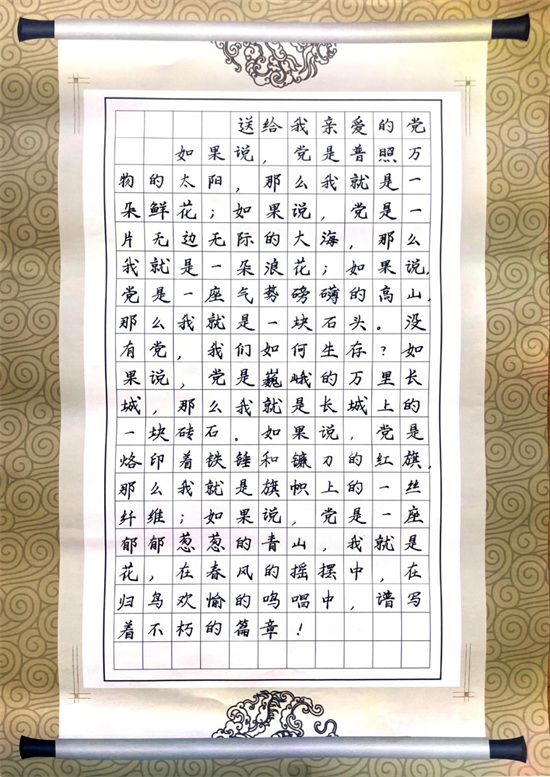 送给我亲爱的党
如果说，党是普照万
物的太阳，那么我就是一
朵鲜花；如果说，党是一
片无边无际的大海，那么
我就是一朵浪花；如果说，
党是一座气势磅礴的高山，
那么我就是一块石头。没
有党，我们如何生存？如
果说，党是巍峨的万里长
城，那么我就是长城上的
一块砖石。如果说，党是
烙印着铁锤和镰刀的红旗，
那么我就是旗帜上的一丝
纤维；如果说，党是一座
郁郁葱葱的青山，我就是
花，在春风的摇摆中，在
归鸟欢愉的鸣唱中，谱写
着不朽的篇章！